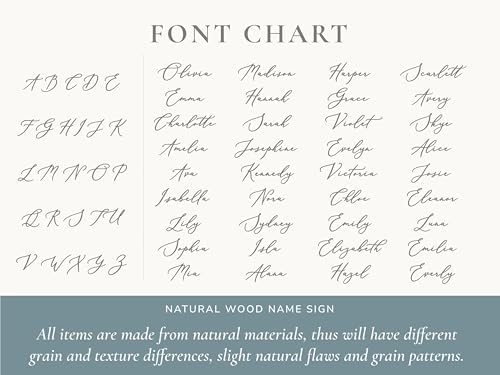 FONT CHART
A B C D E
F G H I J K
L M N O P
Q R S T U
V W X Y Z
Olivia Madison Harper Scarlett
Emma Hannah Grace Avery
Charlotte Sarah Violet Skye
Amelia Josephine Evelyn Alice
Ava Kennedy Victoria Josie
Isabella Nora Chloe Eleanor
Lily Sydney Emily Luna
Sophia Isla Elizabeth Emilia
Mia Alana Hazel Everly
NATURAL WOOD NAME SIGN
All items are made from natural materials, thus will have different
grain and texture differences, slight natural flaws and grain patterns.